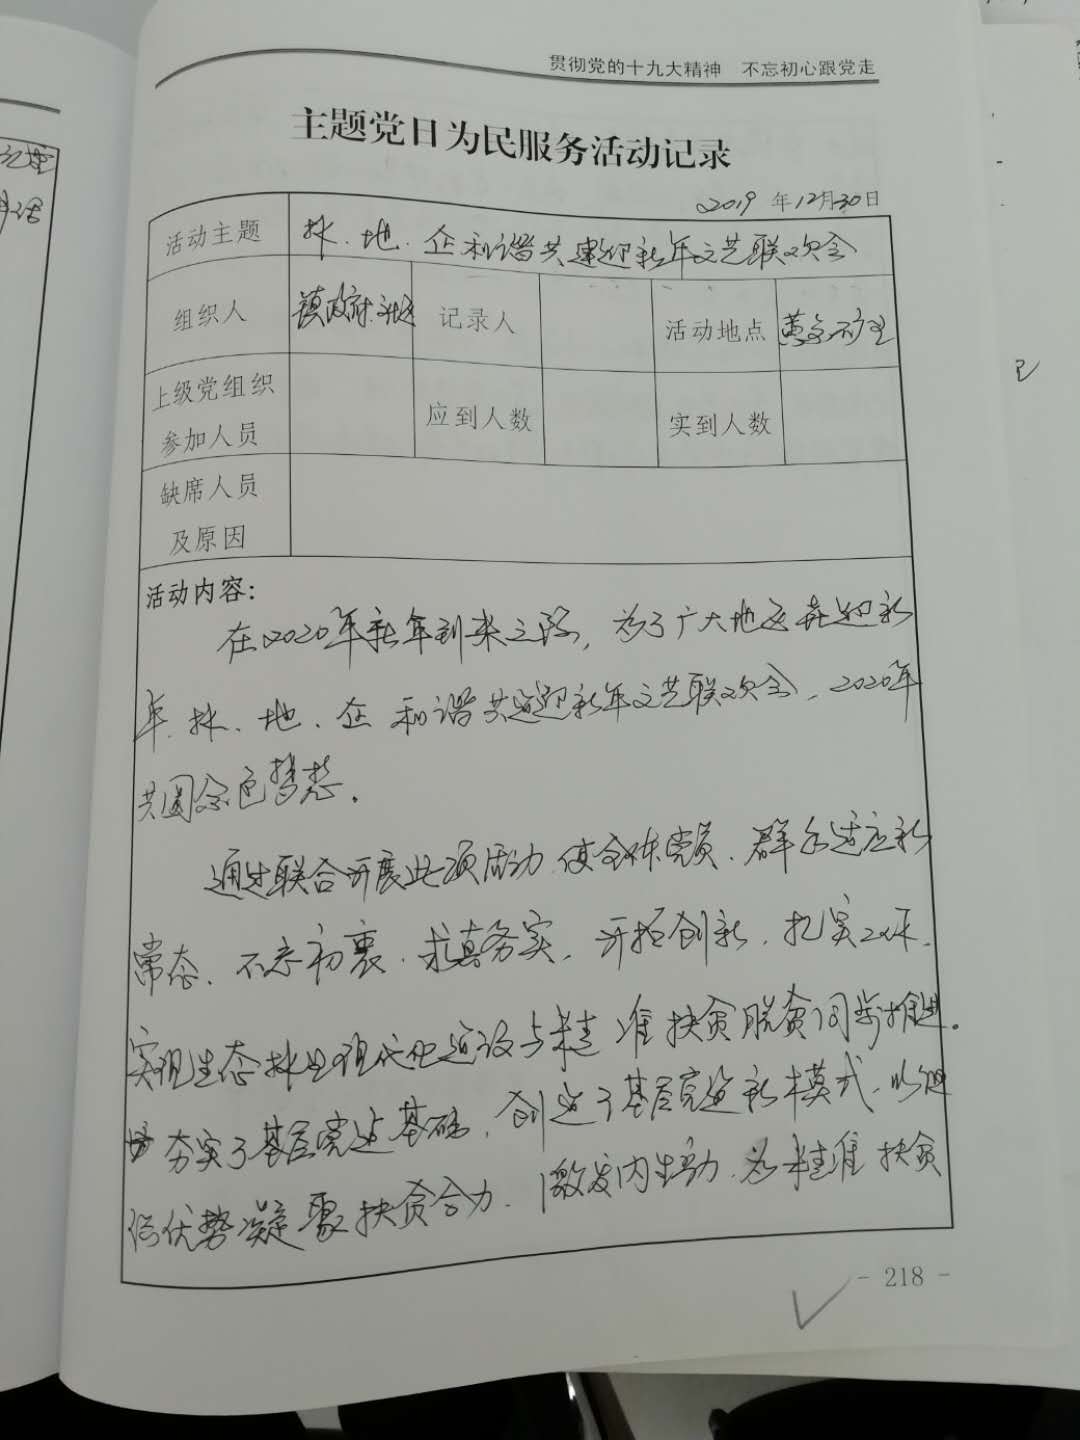 贯彻党的十九大精神 不忘初心跟党走
主题党日为民服务活动记录
2019 年12月30日
活动主题 林、地、企和谐共建迎新年文艺联欢会
组织人 镇政府 记录人 活动地点
上级党组织
参加人员 应到人数 实到人数
缺席人员
及原因
活动内容:
在2020年新年到来之际，为了广大地区喜迎新
年、林、地、企和谐共建迎新年文艺联欢会，2020年
共圆金色梦想。
通过联合开展此项活动，使全体党员、群众适应新
常态、不忘初衷、求真务实，开拓创新，扎实工作、
实现生态林业现代化建设与精准扶贫脱贫同步推进。
夯实了基层党建基础，创造了基层党建新模式，以组
织优势凝聚扶贫合力，激发内生动力，为精准扶贫
- 218 -